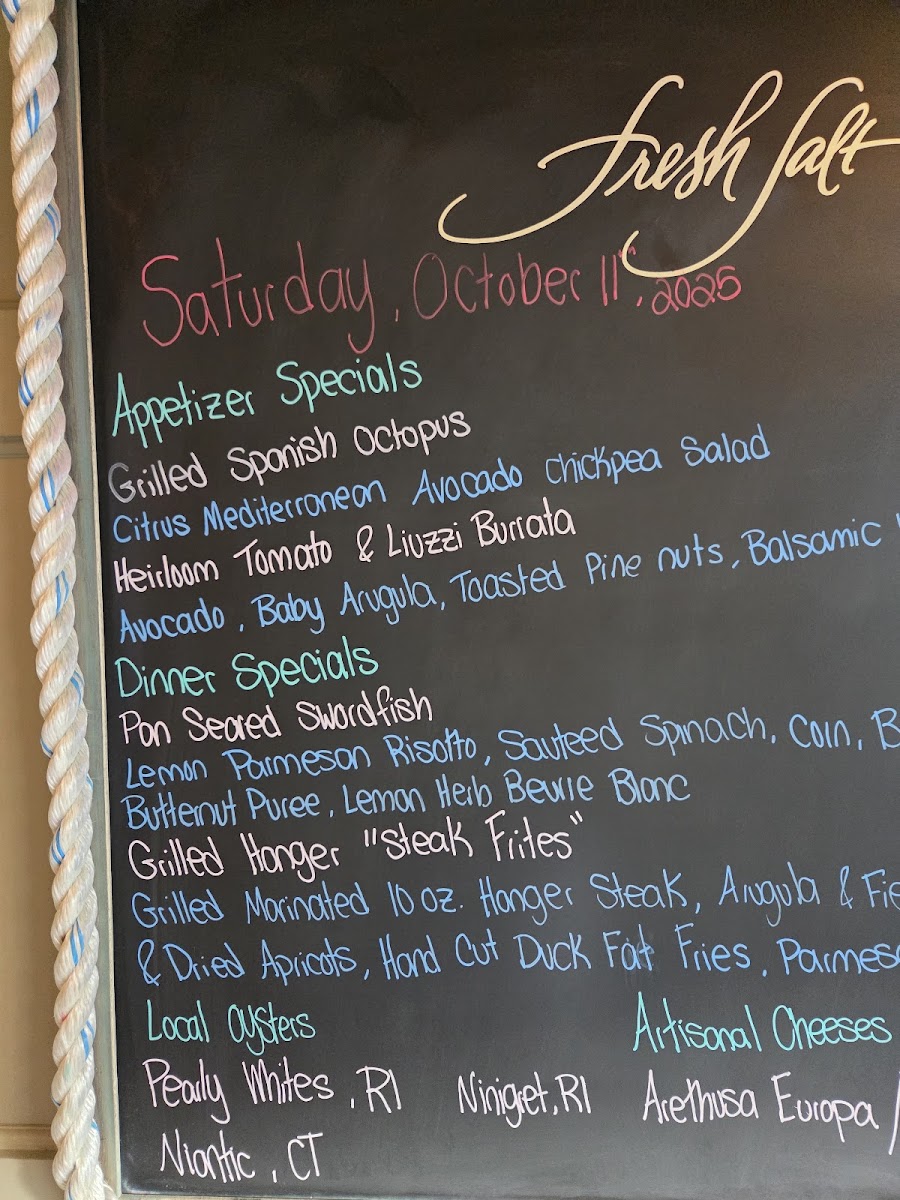 Fresh Salt
Saturday, October 11th, 2025
Appetizer Specials
Grilled Spanish Octopus
Citrus Mediterranean Avocado Chickpea Salad
Heirloom Tomato & Liuzzi Burrata
Avocado, Baby Arugula, Toasted Pine nuts, Balsamic
Dinner Specials
Pan Seared Swordfish
Lemon Parmesan Risotto, Sauteed Spinach, Corn, B
Butternut Puree, Lemon Herb Beurre Blanc
Grilled Hanger "Steak Frites"
Grilled Marinated 10 oz. Hanger Steak, Arugula & Fie
& Dried Apricots, Hand Cut Duck Fat Fries, Parmesa
Local Oysters
Artisanal Cheeses
Pearly Whites, RI Ninigret, RI
Arethusa Europa
Niantic, CT